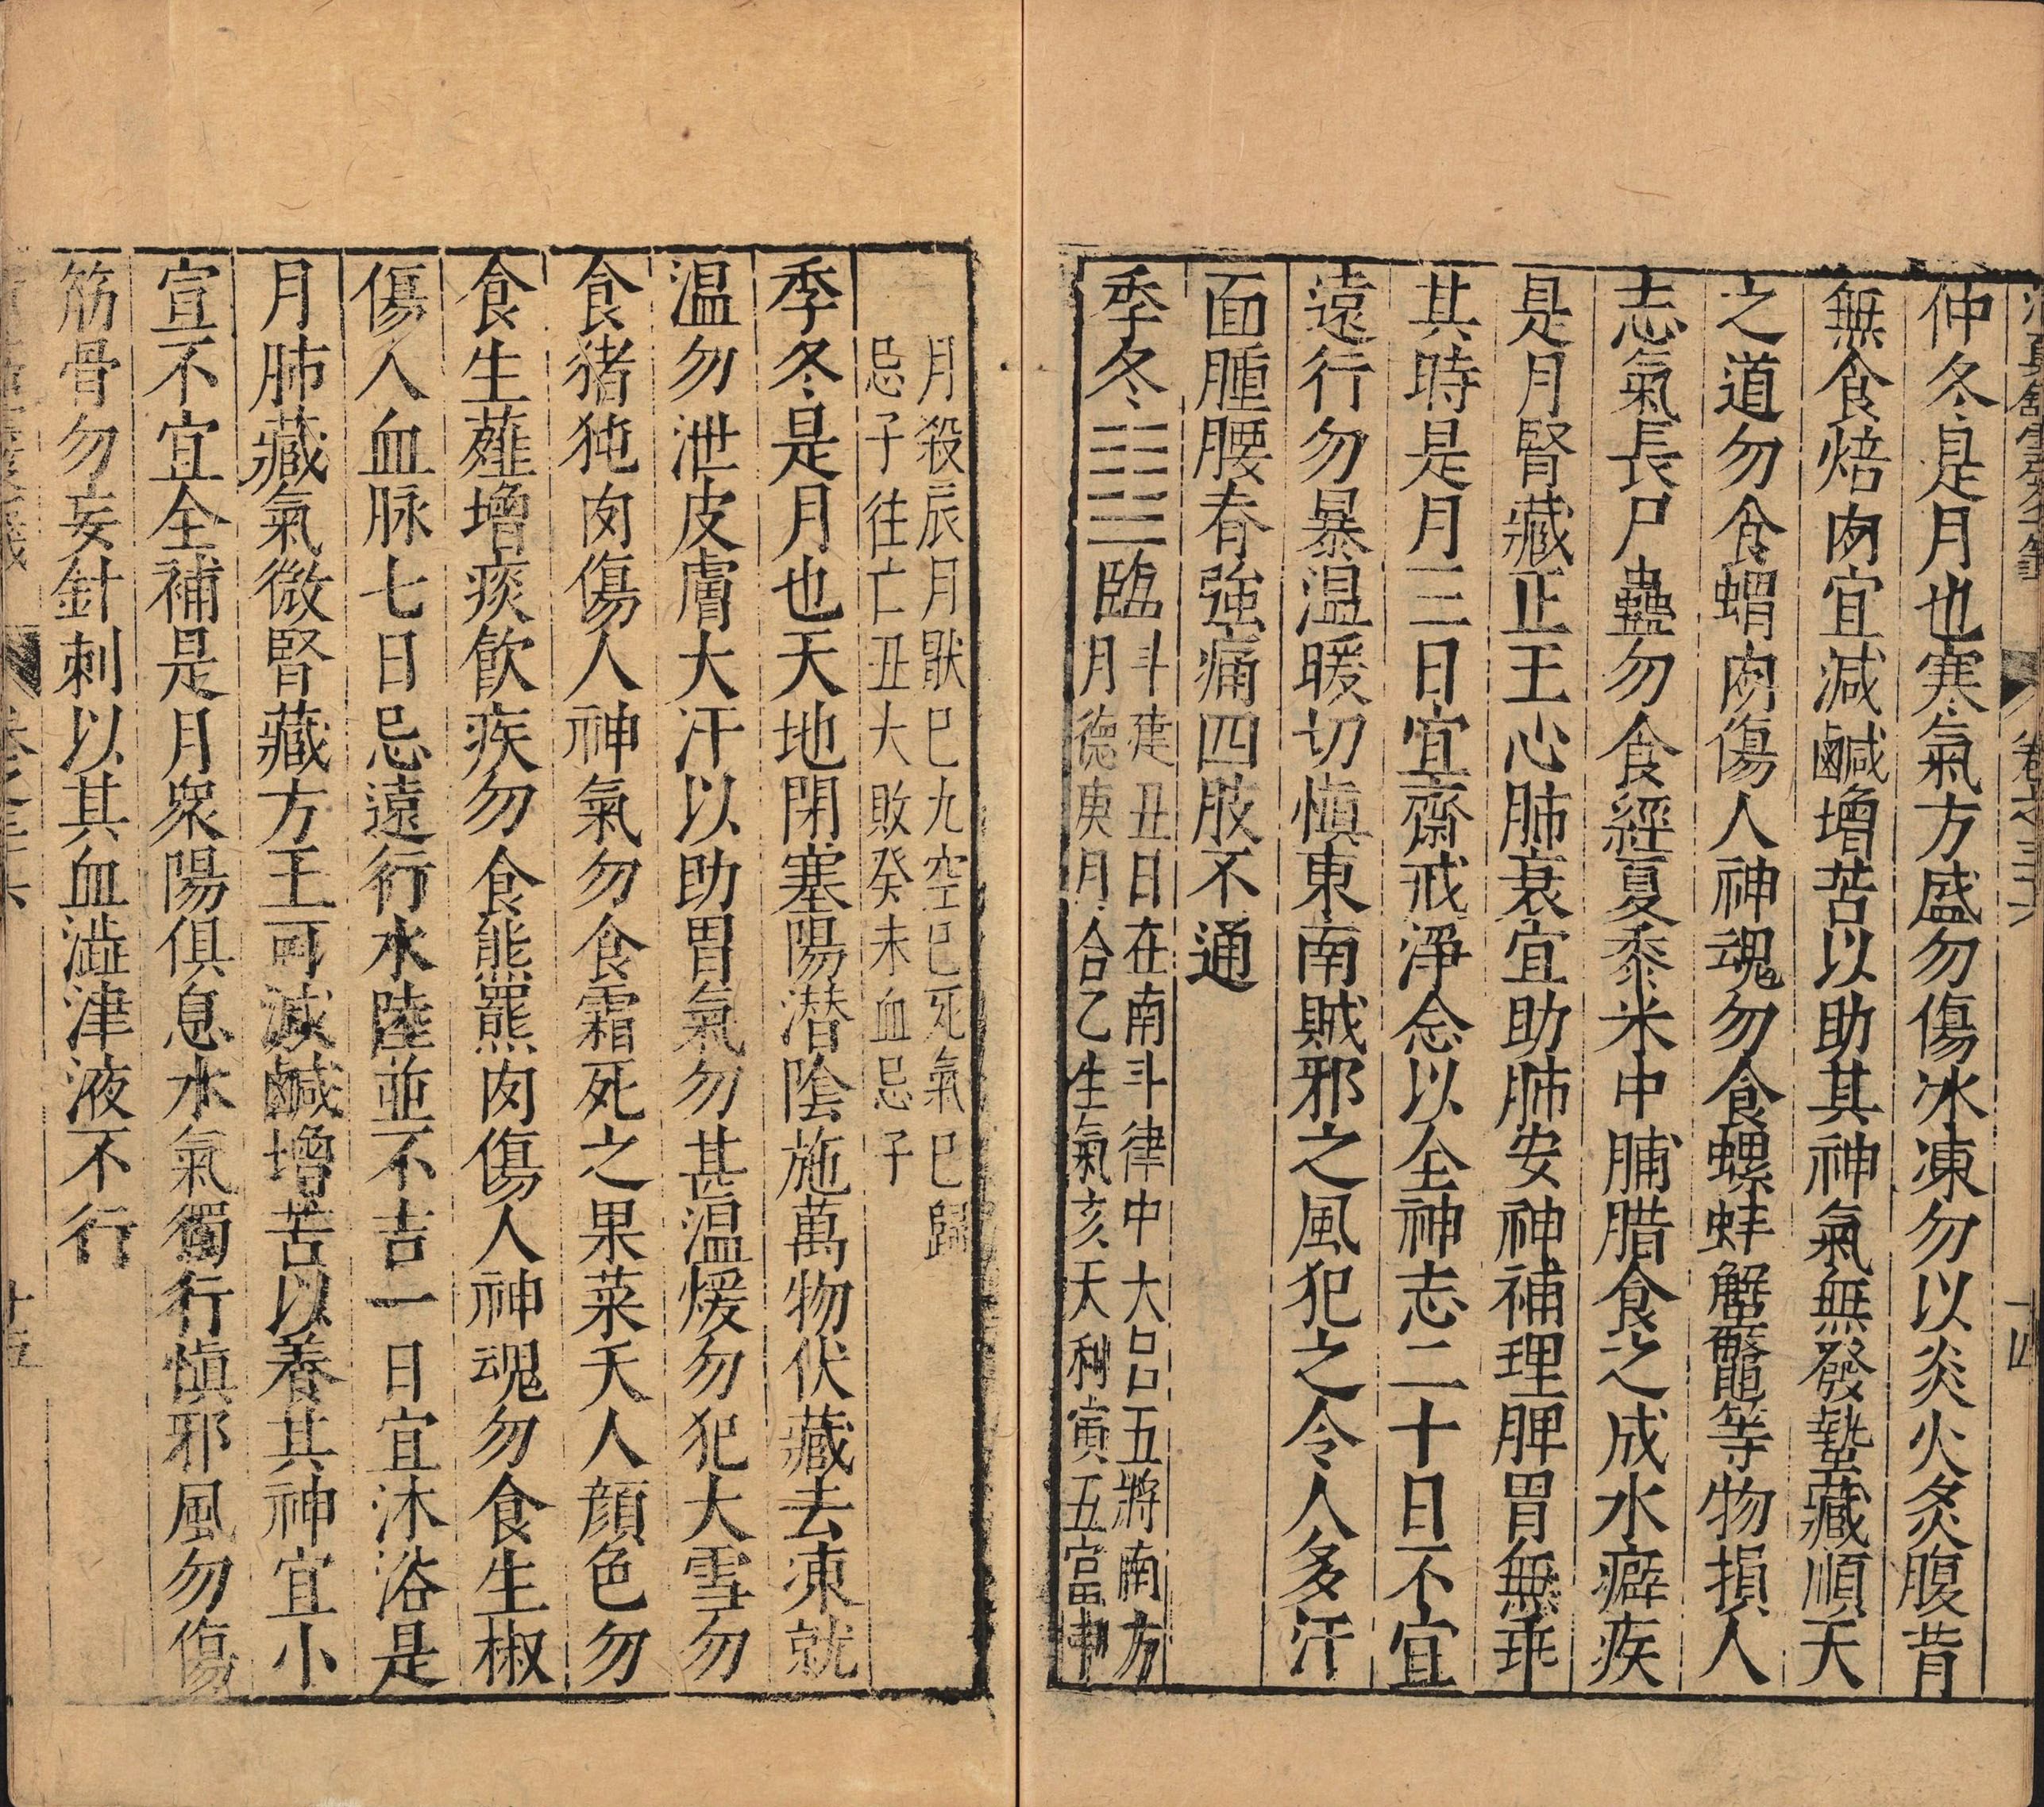 卷之三十六
十四
仲冬是月也寒氣方盛勿傷冰凍勿以炎火炙腹背
無食焙肉宜減鹹增苦以助其神氣無發蟄藏順天
之道勿食蝟肉傷人神魂勿食螺蚌蟹鼈等物損人
志氣長尸蠱勿食經夏黍米中脯腊食之成水癖疾
是月腎藏正王心肺衰宜助肺安神補理脾胃無乖
其時是月三日宜齋戒淨念以全神志二十日不宜
遠行勿暴温暖切慎東南賊邪之風犯之令人多汗
面腫腰脊強痛四肢不通
季冬䷒臨
斗建丑日在南斗律中大吕五將南方
月德庚月合乙生氣亥天利寅五富申
月殺辰月厭巳九空巳死氣巳歸
忌子往亡丑大敗癸未血忌子
季冬是月也天地閉塞陽潜陰施萬物伏藏去凍就
温勿泄皮膚大汗以助胃氣勿甚温煖勿犯大雪勿
食猪㹠肉傷人神氣勿食霜死之果菜夭人顔色勿
食生薤增痰飲疾勿食熊羆肉傷人神魂勿食生椒
傷人血脉七日忌遠行水陸並不吉一日宜沐浴是
月肺藏氣微腎藏方王可減鹹增苦以養其神宜小
宣不宜全補是月衆陽俱息水氣獨行慎邪風勿傷
筋骨勿妄針刺以其血澁津液不行
十五